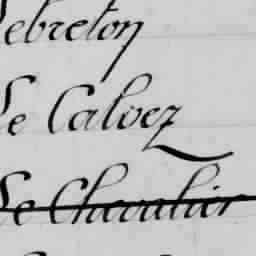 Lebreton
Le Calvez
Le Chevalier